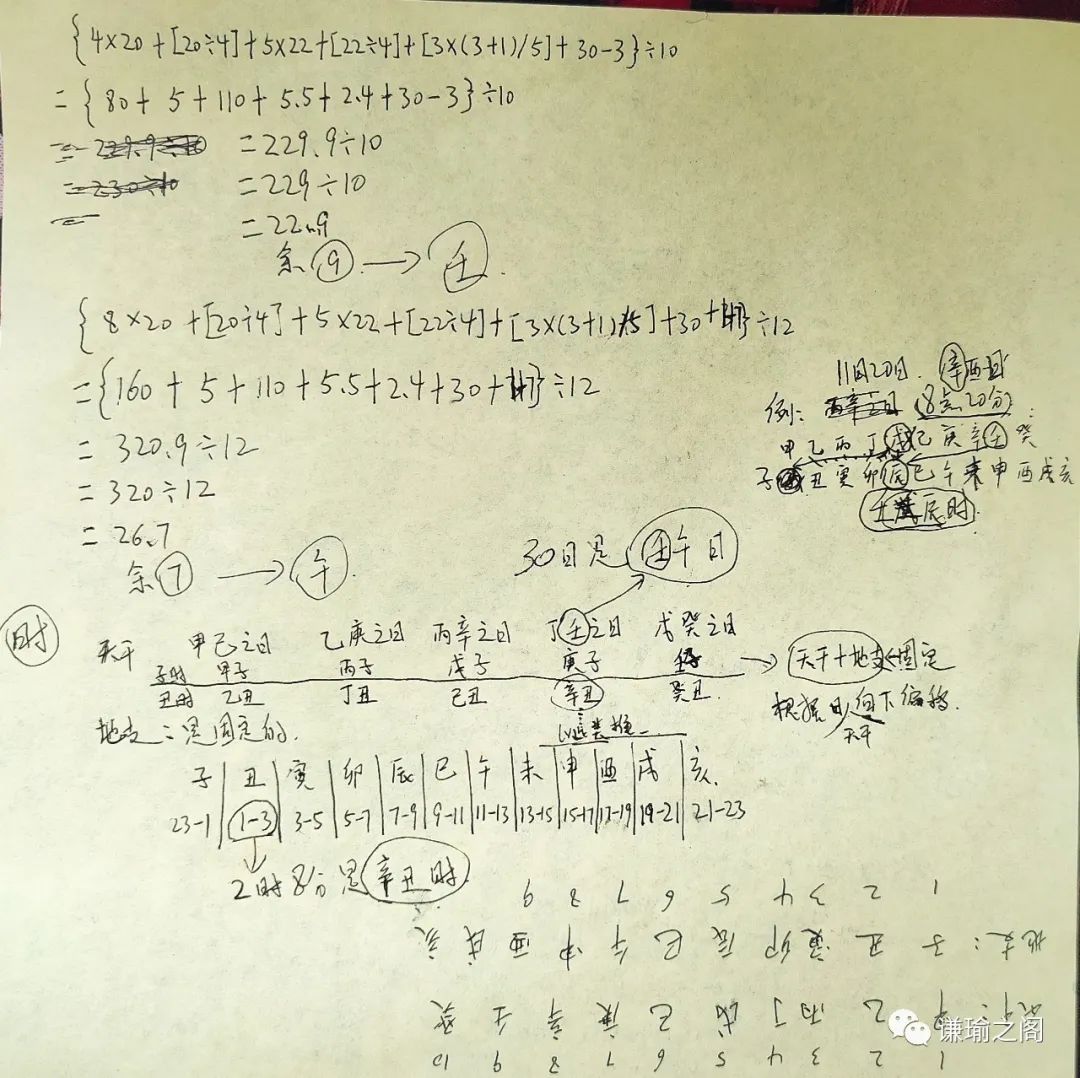 {4×20+[20÷4]+5×22+[22÷4]+[3×(3+1)/5]+30-3}÷10
={80+5+110+5.5+2.4+30-3}÷10
=229.9÷10
=229÷10
=22.9
余⑨→壬.
{8×20+[20÷4]+5×22+[22÷4]+[3×(3+1)/5]+30+7}÷12
={160+5+110+5.5+2.4+30+7}÷12
=320.9÷12
=320÷12
=26.7
余⑦→午.
11月20日. 辛酉日
例: 8点20分:
甲乙丙丁戊己庚辛壬癸
子丑寅卯辰巳午未申酉戌亥
壬辰时.
30日是壬午日
时
天干 甲己之日 乙庚之日 丙辛之日 丁壬之日 戊癸之日
子时 甲子 丙子 戊子 庚子 壬子 → 天干+地支 固定
丑时 乙丑 丁丑 己丑 辛丑 癸丑.
根据日天干向下偏移.
地支:是固定的.
以此类推
子 丑 寅 卯 辰 巳 午 未 申 酉 戌 亥.
23-1 1-3 3-5 5-7 7-9 9-11 11-13 13-15 15-17 17-19 19-21 21-23
2时8分是辛丑时.
1 2 3 4 5 6 7 8 9 10
天干:甲乙丙丁戊己庚辛壬癸
地支:子丑寅卯辰巳午申酉戌亥
1 2 3 4 5 6 7 8 9
谦瑜之阁